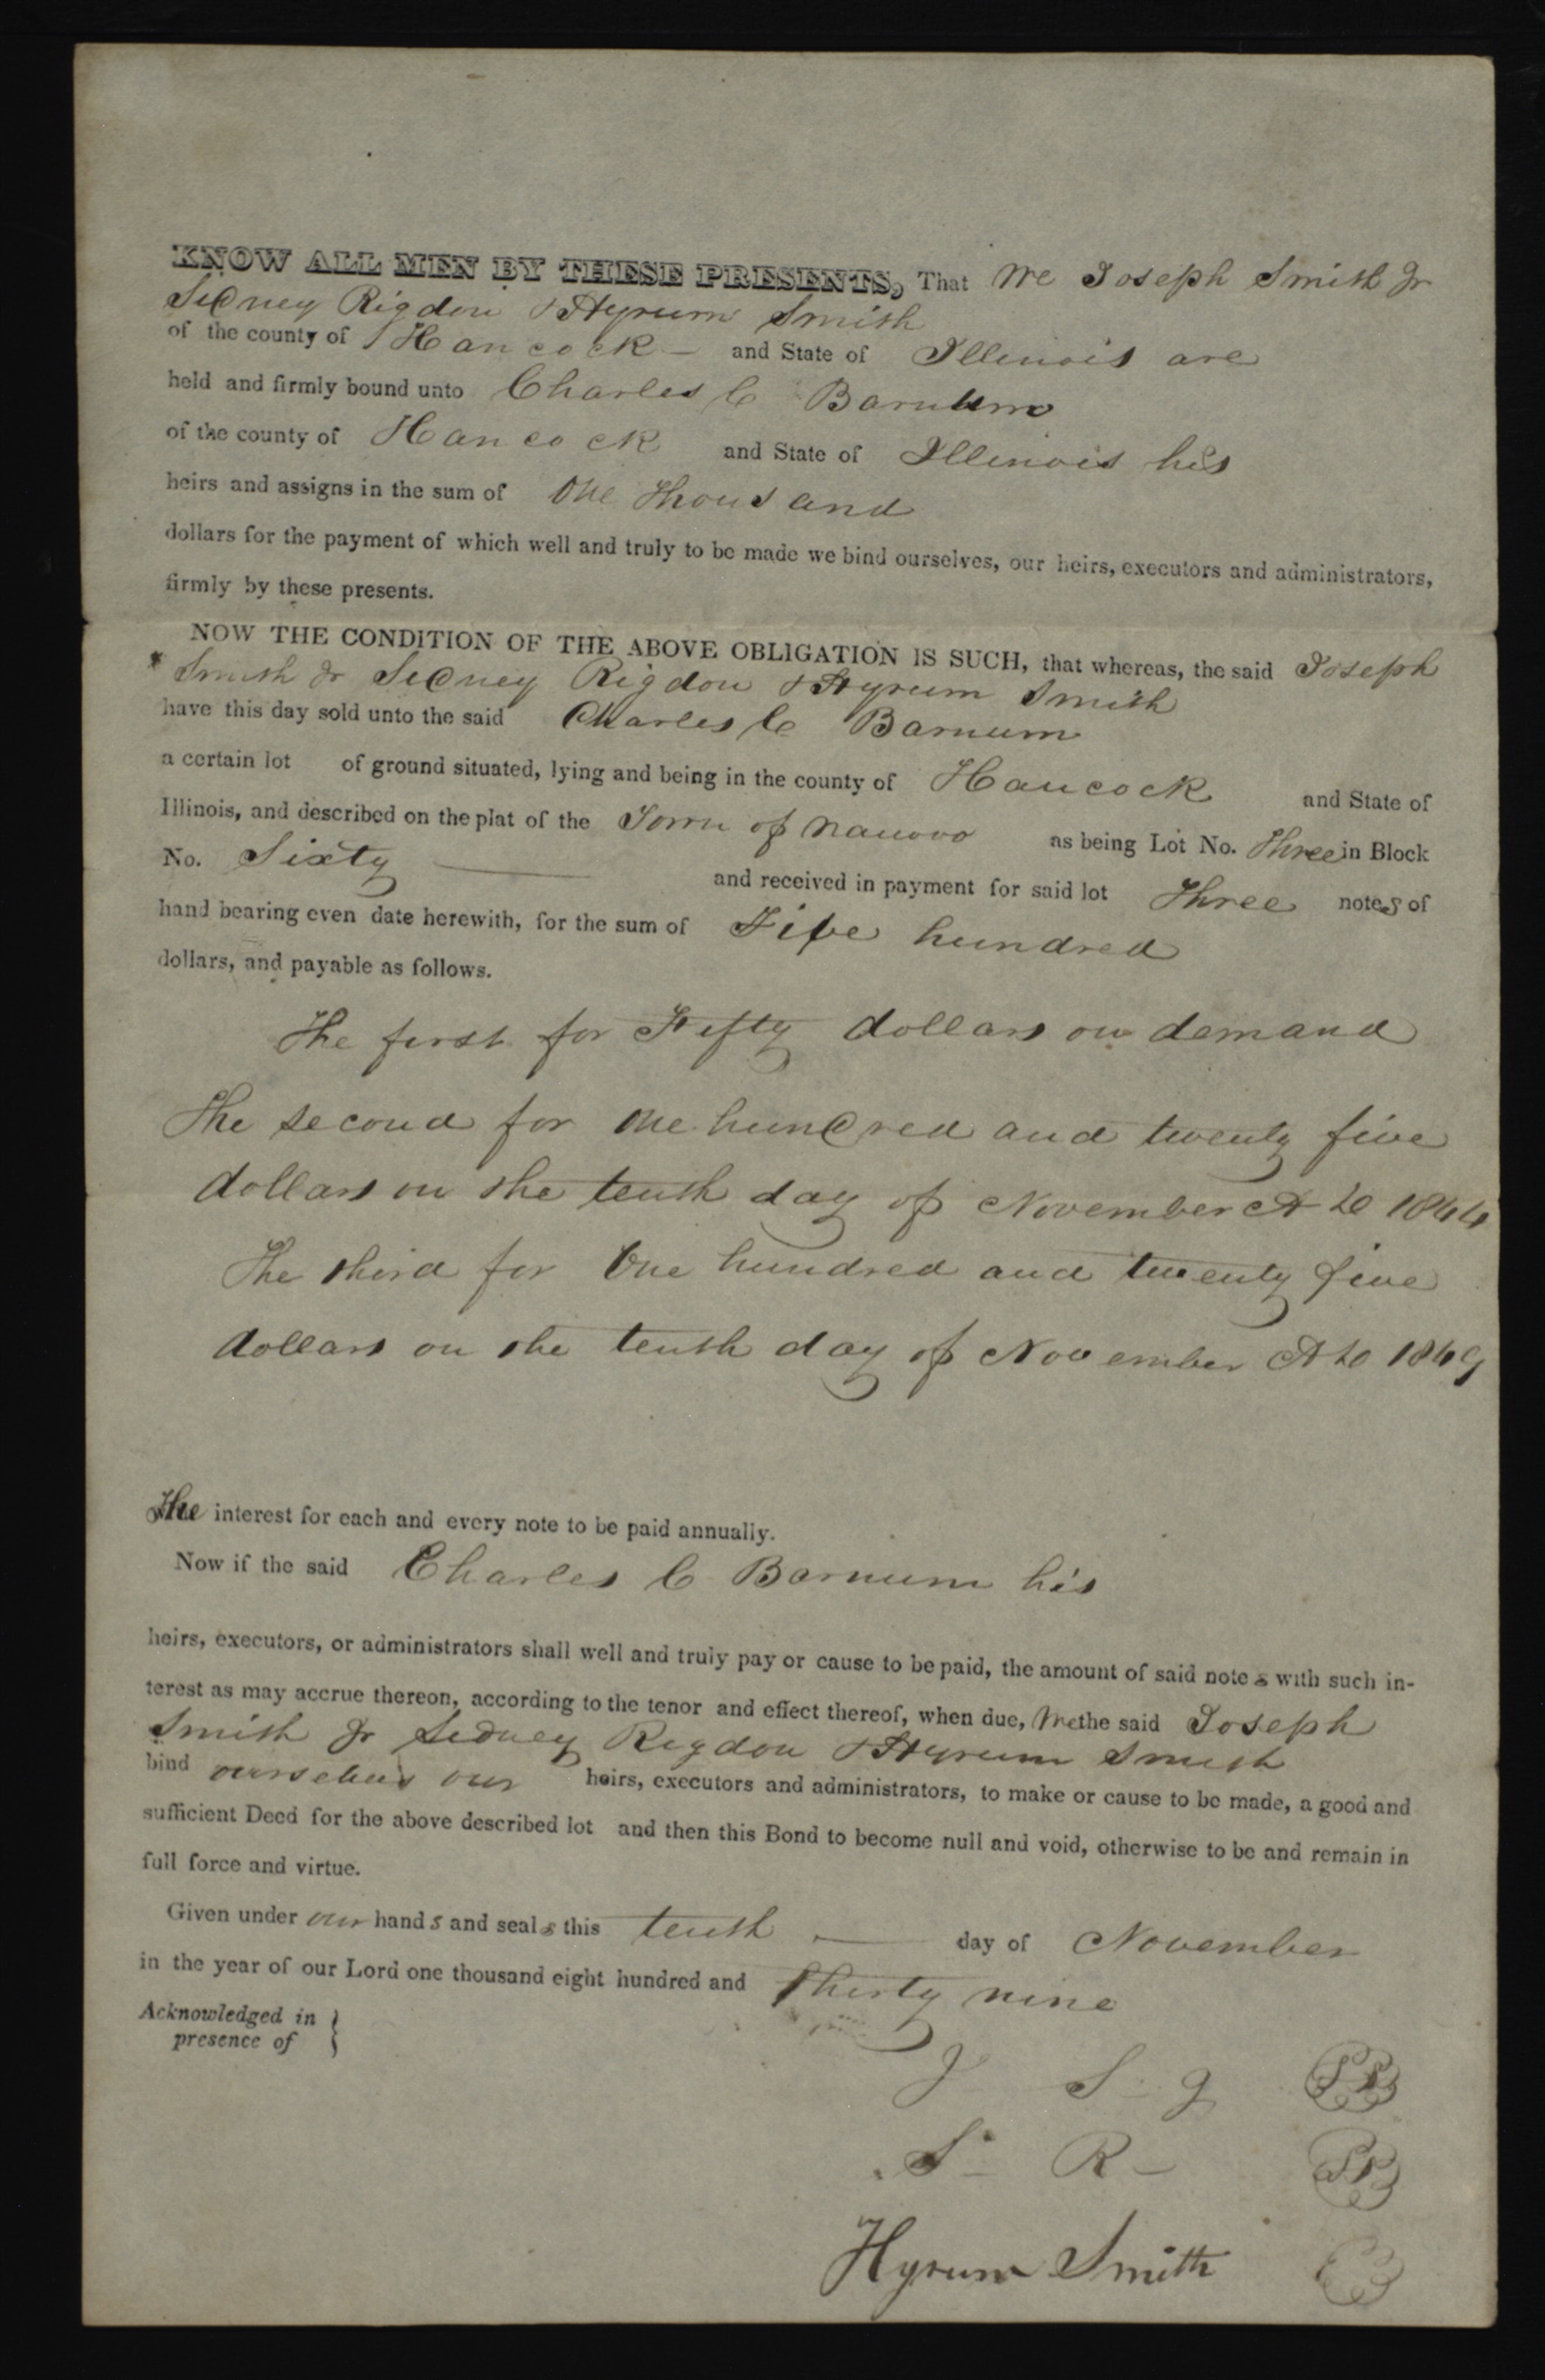 KNOW ALL MEN BY THESE PRESENTS, That We Joseph Smith Jr
Sidney Rigdon & Hyrum Smith
of the county of Hancock — and State of Illinois are
held and firmly bound unto Charles C Barnum
of the county of Hancock and State of Illinois his
heirs and assigns in the sum of One thousand
dollars for the payment of which well and truly to be made we bind ourselves, our heirs, executors and administrators,
firmly by these presents.
NOW THE CONDITION OF THE ABOVE OBLIGATION IS SUCH, that whereas, the said Joseph
Smith Jr Sidney Rigdon & Hyrum Smith
have this day sold unto the said Charles C Barnum
a certain lot of ground situated, lying and being in the county of Hancock and State of
Illinois, and described on the plat of the Town of Nauvoo as being Lot No. Three in Block
No. Sixty — and received in payment for said lot Three notes of
hand bearing even date herewith, for the sum of Five hundred
dollars, and payable as follows.
The first for Fifty dollars on demand
The second for One hundred and twenty five
dollars on the tenth day of November A D 1844
The third for One hundred and twenty five
dollars on the tenth day of November A D 1849
The interest for each and every note to be paid annually.
Now if the said Charles C Barnum his
heirs, executors, or administrators shall well and truly pay or cause to be paid, the amount of said notes with such in-
terest as may accrue thereon, according to the tenor and effect thereof, when due, We the said Joseph
Smith Jr Sidney Rigdon & Hyrum Smith
bind ourselves our heirs, executors and administrators, to make or cause to be made, a good and
sufficient Deed for the above described lot and then this Bond to become null and void, otherwise to be and remain in
full force and virtue.
Given under our hands and seals this tenth — day of November
in the year of our Lord one thousand eight hundred and thirty nine
Acknowledged in
presence of }
J S - J
S - R -
Hyrum Smith